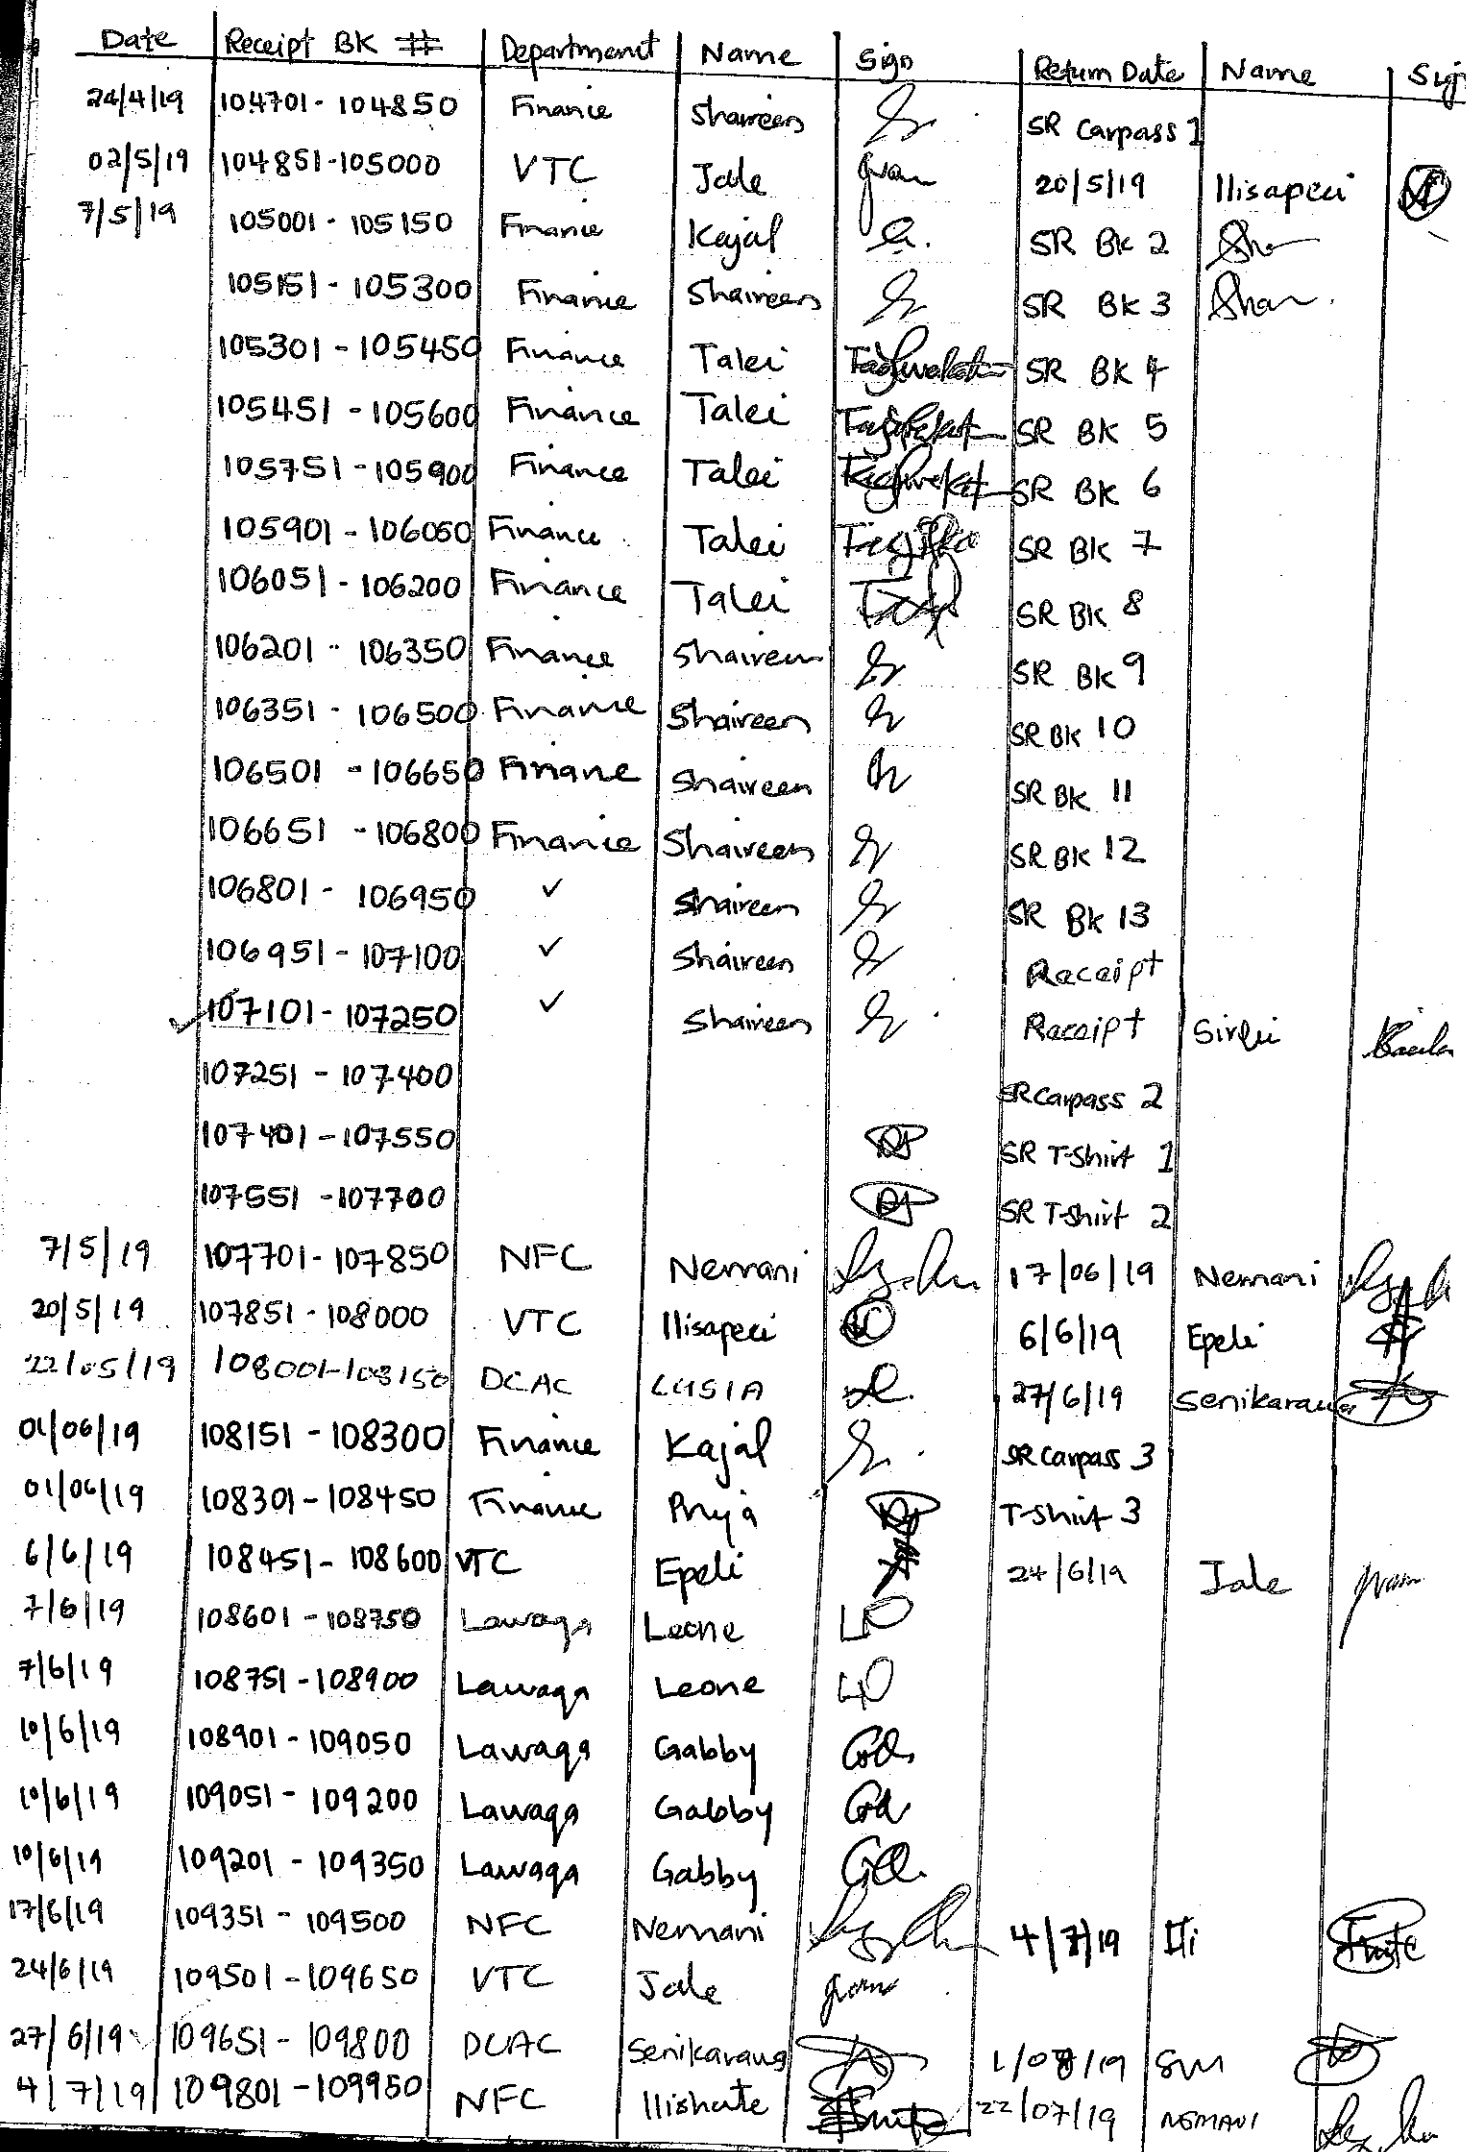 Date Receipt BK # Department Name Sign Return Date Name
24/4/19 104701 - 104850 Finance Shaireen SR Carpass 1
02/5/19 104851 - 105000 VTC Jale 20/5/19 Ilisapeci
7/5/19 105001 - 105150 Finance Kajal SR Bk 2
105151 - 105300 Finance Shaireen SR BK 3
105301 - 105450 Finance Talei SR BK 4
105451 - 105600 Finance Talei SR BK 5
105751 - 105900 Finance Talei SR BK 6
105901 - 106050 Finance Talei SR BK 7
106051 - 106200 Finance Talei SR BK 8
106201 - 106350 Finance Shaireen SR BK 9
106351 - 106500 Finance Shaireen SR BK 10
106501 - 106650 Finane Shaireen SR BK 11
106651 - 106800 Finance Shaireen SR BK 12
106801 - 106950 ✓ Shaireen SR BK 13
106951 - 107100 ✓ Shaireen Receipt
✓ 107101 - 107250 ✓ Shaireen Receipt
107251 - 107400 SR Carpass 2
107401 - 107550 SR T-Shirt 1
107551 - 107700 SR T-Shirt 2
7/5/19 107701 - 107850 NFC Nemani 17/06/19 Nemani
20/5/19 107851 - 108000 VTC Ilisapeci 6/6/19 Epeli
22/05/19 108001 - 108150 DCAC LUSIA 27/6/19 Senikarawa
01/06/19 108151 - 108300 Finance Kajal SR Carpass 3
01/06/19 108301 - 108450 Finance T-Shirt 3
6/6/19 108451 - 108600 VTC Epeli 24/6/19 Jale
7/6/19 108601 - 108750 Lawaqa Leone LO
7/6/19 108751 - 108900 Lawaqa Leone LO
10/6/19 108901 - 109050 Lawaqa Gabby
10/6/19 109051 - 109200 Lawaqa Gabby
10/6/19 109201 - 109350 Lawaqa Gabby
17/6/19 109351 - 109500 NFC Nemani 4/7/19
24/6/19 109501 - 109650 VTC Jale
27/6/19 109651 - 109800 DCAC Senikaraua 1/08/19
4/7/19 109801 - 109950 NFC 22/07/19 NEMANI